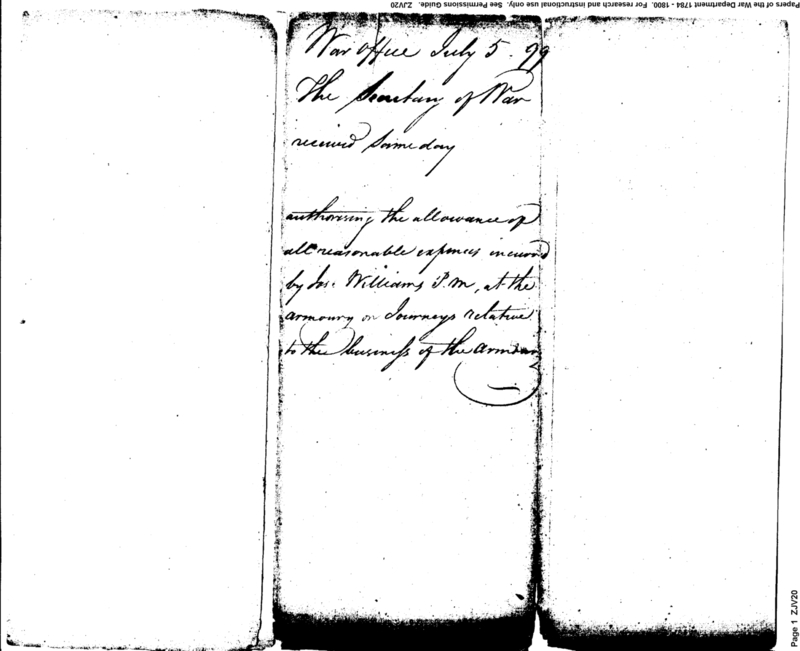 Papers of the War Department 1784 - 1800. For research and instructional use only. See Permissions Guide. ZJV20
War office July 5. 99
The Secretary of War
received Same day
authorising the allowance of
all reasonable expences incurred
by Jos: Williams P. M, at the
armoury on Journeys relative
to the business of the armoury
Page 1 ZJV20